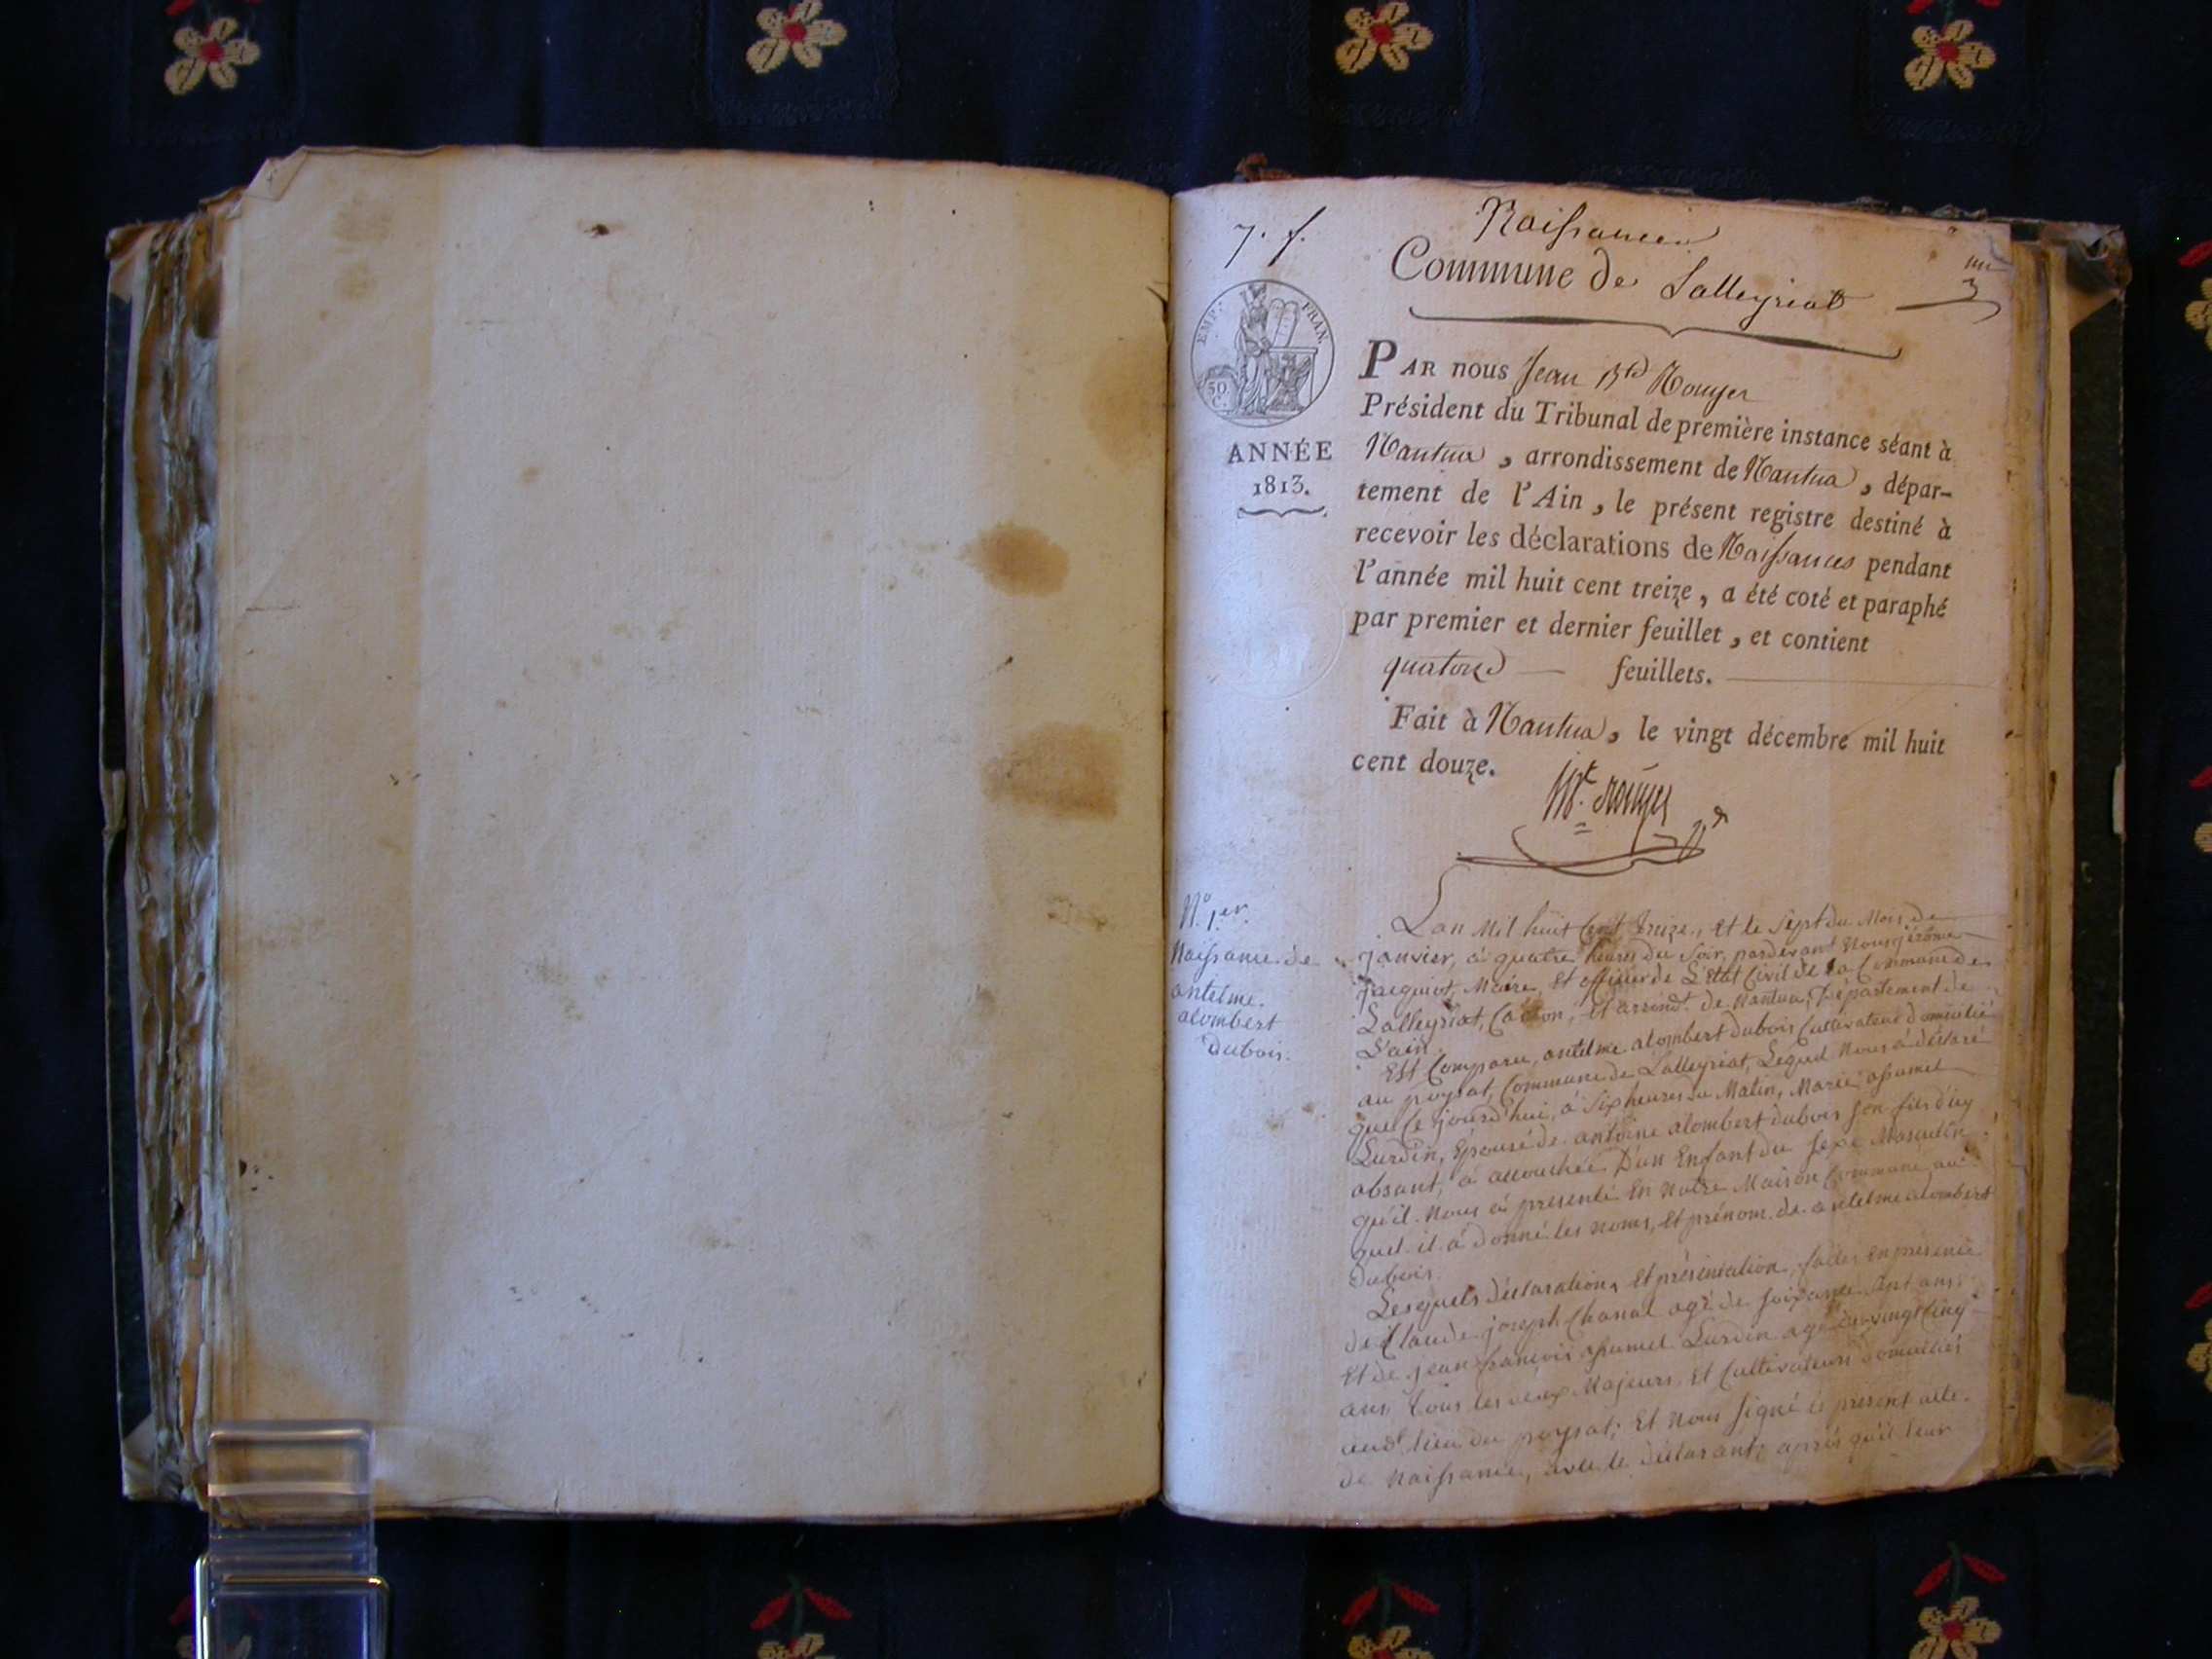 7. f.
Naissances
Commune de Lalleyriat
EMP. FRAN.
50 C.
ANNÉE
1813.
PAR nous Jean Bte Rouyer
Président du Tribunal de première instance séant à
Nantua, arrondissement de Nantua, dépar-
tement de l'Ain, le présent registre destiné à
recevoir les déclarations de Naissances pendant
l'année mil huit cent treize, a été coté et paraphé
par premier et dernier feuillet, et contient
quatorze — feuillets.
Fait à Nantua, le vingt décembre mil huit
cent douze.
Bte. Rouyer
N.o 1.er
Naissance de
antelme
alombert
Dubois.
L'an Mil huit Cent Treize, et le Sept du Mois de
janvier, à quatre heures du Soir, pardevant Nous jérôme
jacquiot, Maire, Et officier de L'Etat Civil de la Commune de
Lalleyriat, Canton, et arrondt. de Nantua, Département de
L'ain.
Est Comparu, antelme alombert dubois Cultivateur domicilié
au poysat, Commune de Lalleyriat, Lequel Nous à déclaré
que Ce jourd'hui, à Six heures du Matin, Marie assumel
Lurdin, Epouse de antoine alombert dubois son fils d'icy
absant, à accouchée D'un Enfant du Sexe Masculin
qu'il Nous à présenté En Notre Maison Commune au
quel il à donné les noms, et prénom de antelme alombert
dubois.
Lesquels déclaration, Et présentation, faites En présence
de Claude joseph Chanal agé de soixante Sept ans,
Et de jean françois assumel Lurdin agé de vingt Cinq
ans, Tous les deux Majeurs, Et Cultivateurs domiciliés
audt. lieu du poysat; Et Nous Signé le présent acte
de Naissance, avec le déclarant, après qu'il leur